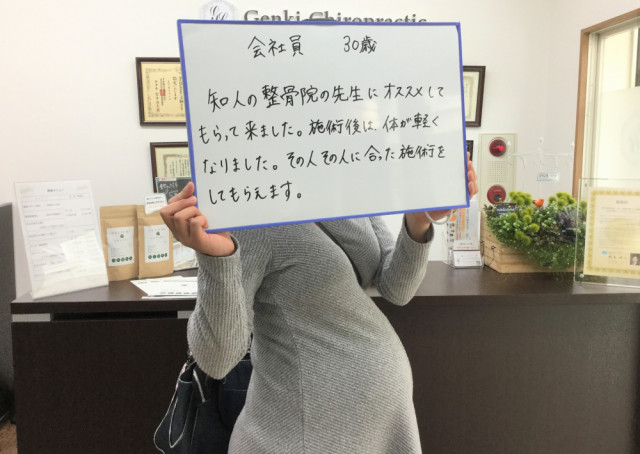 Genki Chiropractic
会社員 30歳
知人の整骨院の先生にオススメして
もらって来ました。施術後は、体が軽く
なりました。その人その人に合った施術を
してもらえます。